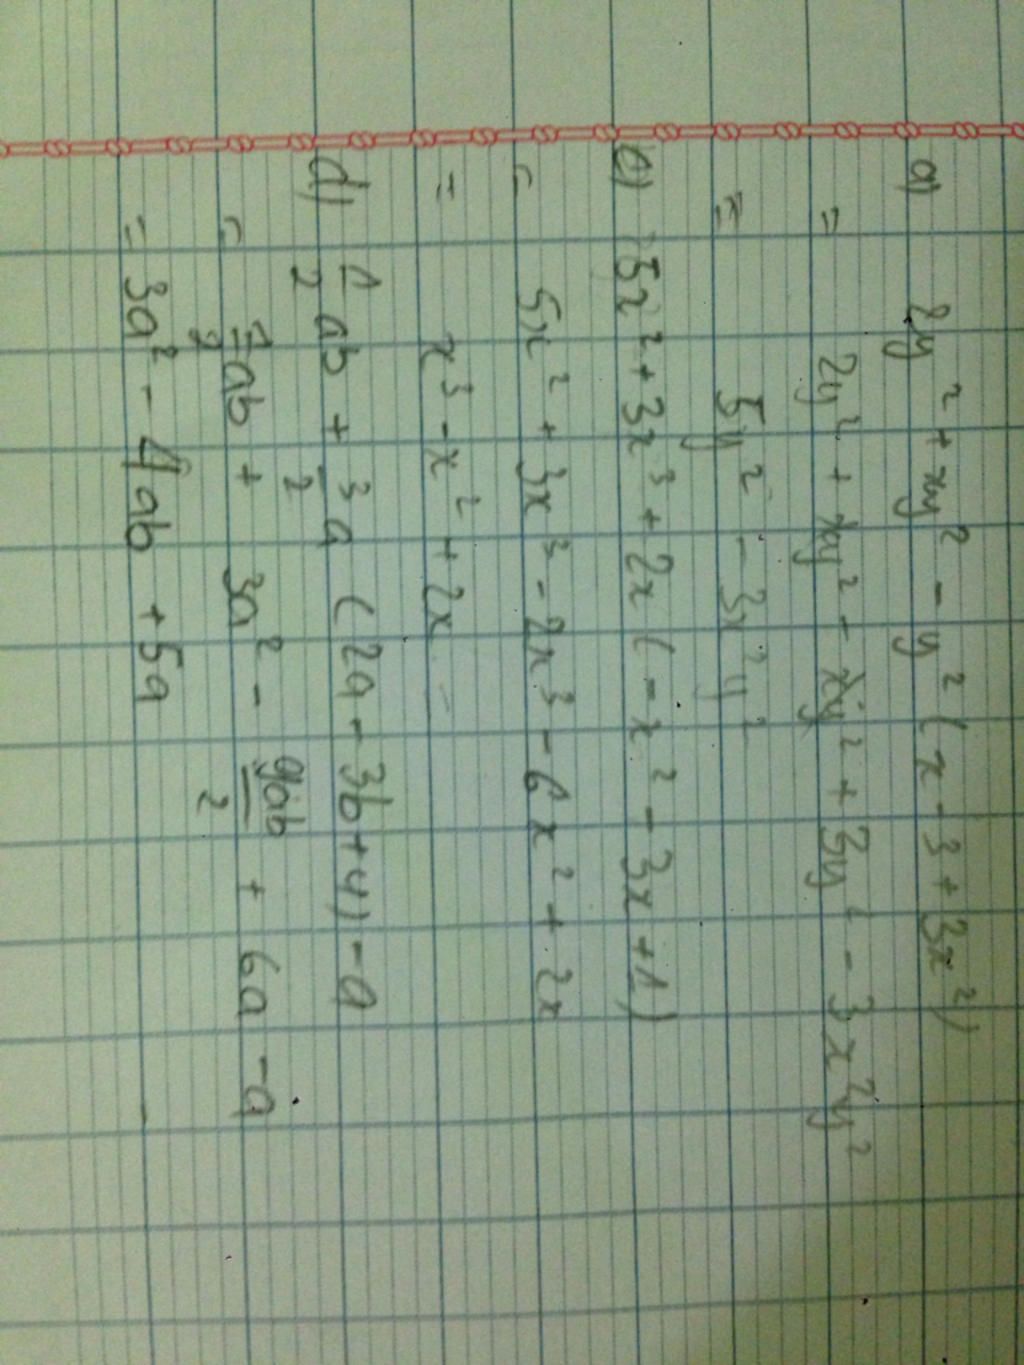 a) 2y² + xy² - y² (x - 3 + 3x²)
= 2y² + xy² - xy² + 3y² - 3x²y²
= 5y² - 3x²y²
c) 5x² + 3x³ + 2x (-x² - 3x + 1)
= 5x² + 3x³ - 2x³ - 6x² + 2x
= x³ - x² + 2x
d) 1/2 ab + 3/2 a (2a - 3b + 4) - a
= 1/2 ab + 3a² - 9ab/2 + 6a - a
= 3a² - 4ab + 5a